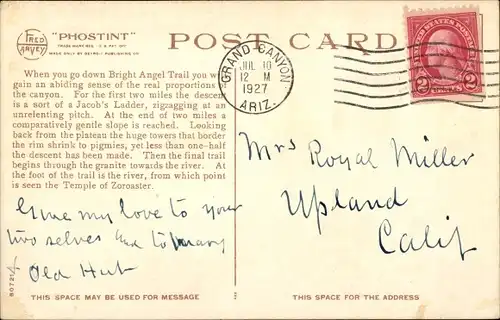 FRED HARVEY
"PHOSTINT"
POST CARD
UNITED STATES POSTAGE
2 CENTS 2
GRAND CANYON
JUL 10
12 M
1927
ARIZ.
When you go down Bright Angel Trail you w
gain an abiding sense of the real proportions
the canyon. For the first two miles the descent
is a sort of a Jacob's Ladder, zigzagging at an
unrelenting pitch. At the end of two miles a
comparatively gentle slope is reached. Looking
back from the plateau the huge towers that border
the rim shrink to pigmies, yet less than one-half
the descent has been made. Then the final trail
begins through the granite towards the river. At
the foot of the trail is the river, from which point
is seen the Temple of Zoroaster.
Give my love to your
two selves and to
Old Hut
Mrs Royal Miller
Upland
Calif
THIS SPACE MAY BE USED FOR MESSAGE
THIS SPACE IS FOR THE ADDRESS